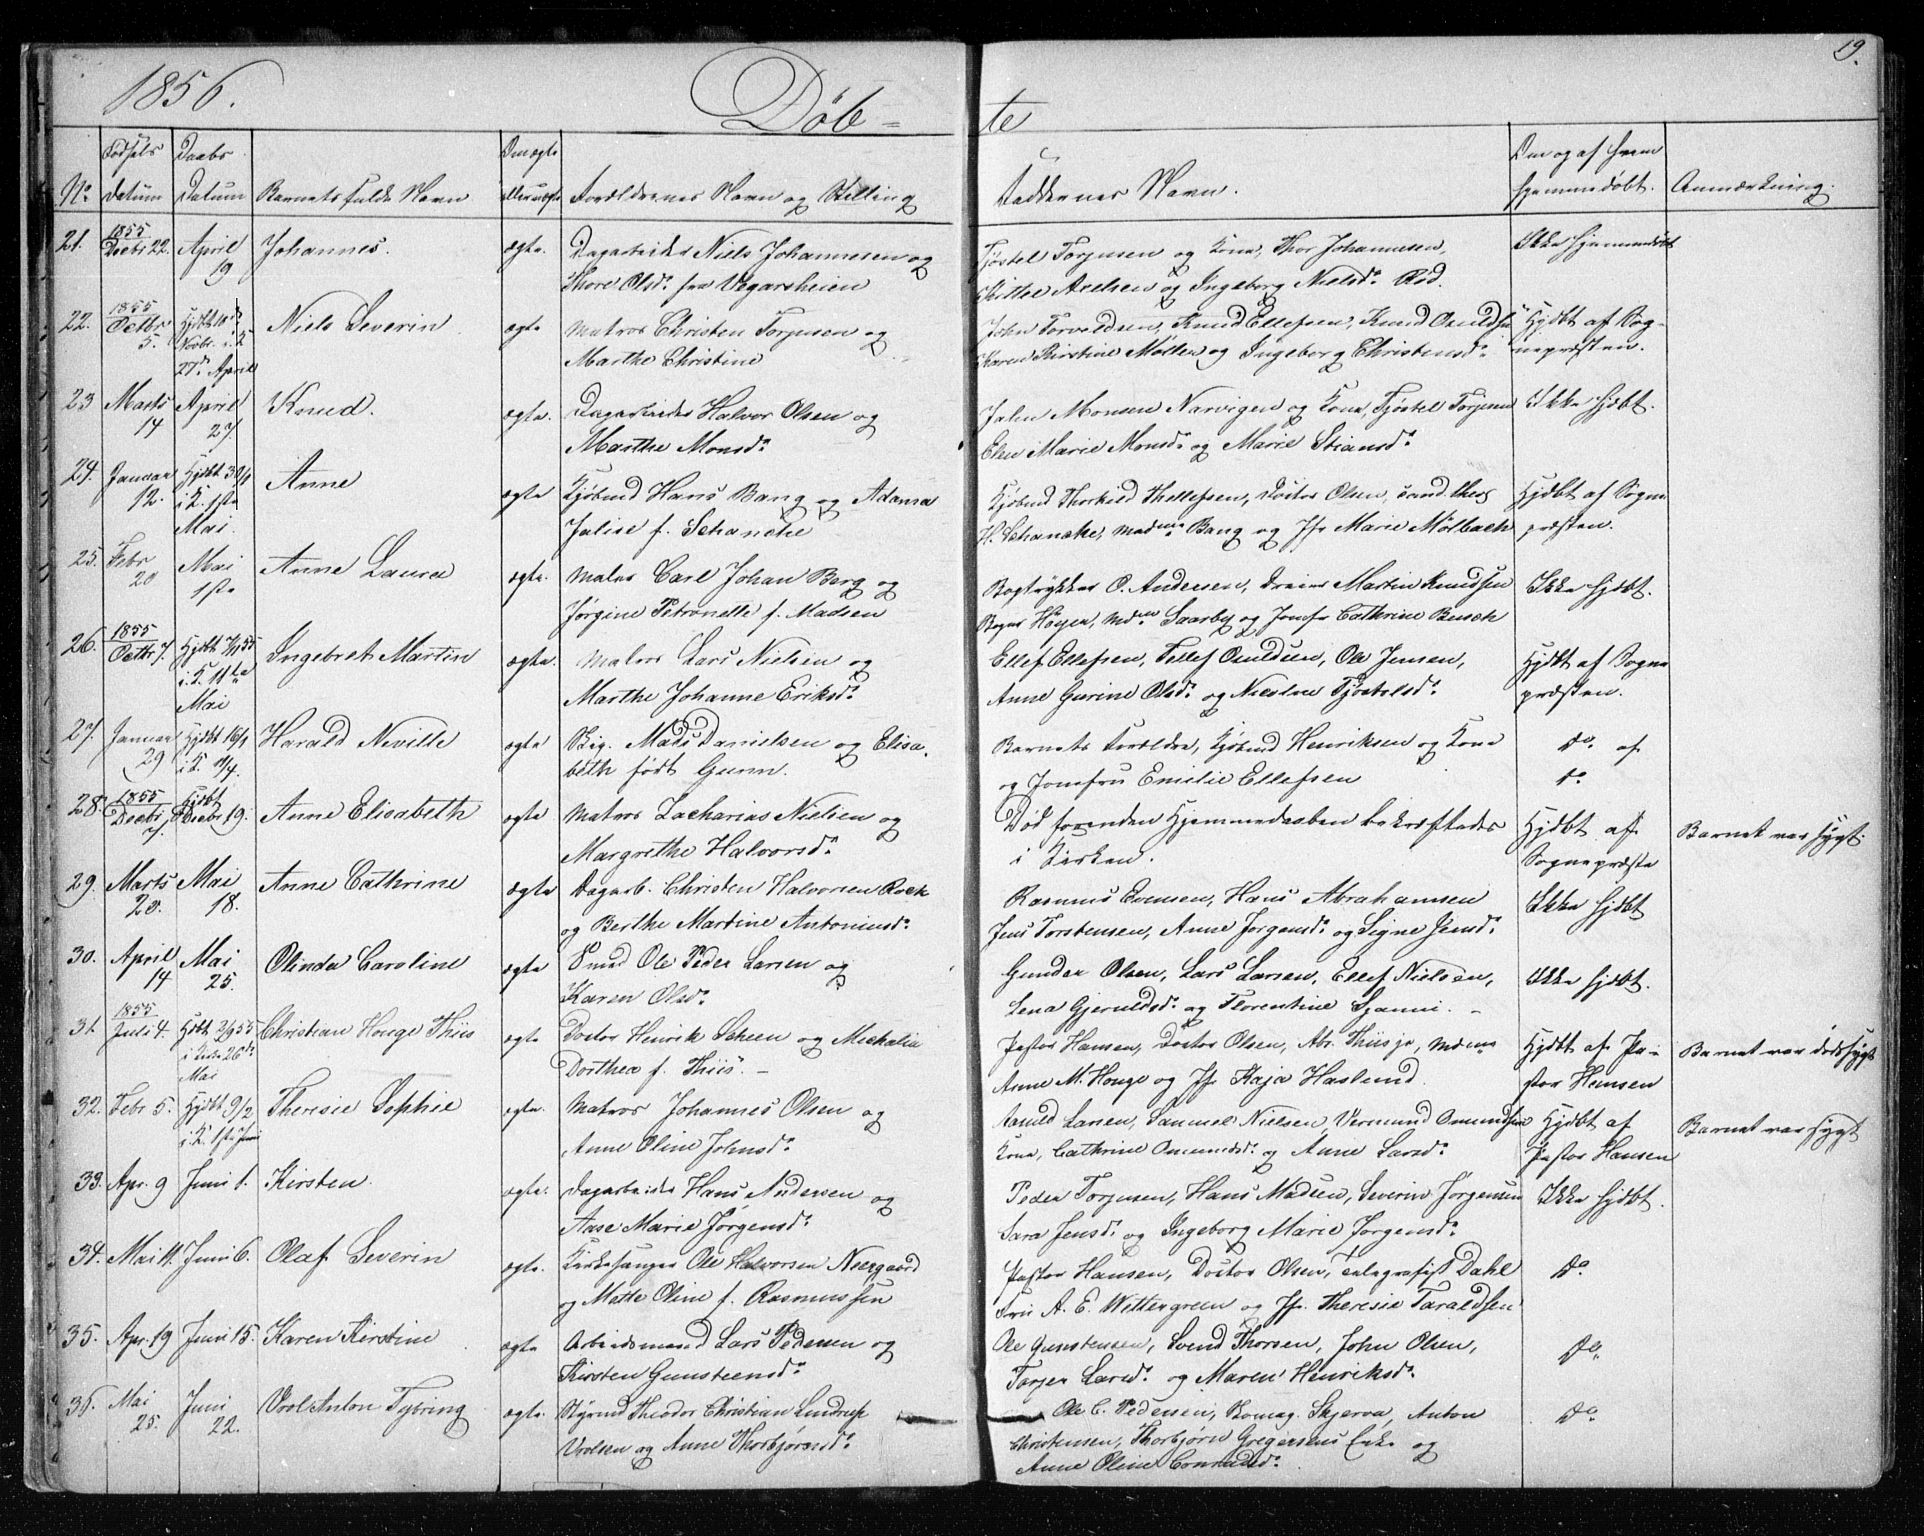 19.
1856.
Døb-
te
No
Fødsels Datum
Daabs Datum
Barnets fulde Navn
Om ægte eller uægte
Forældrenes Navn og Stilling
Faddernes Navn.
Om og af hvem hjemmedøbt.
Anmærkning.
21. 1855 Decbr 22. April 19 Johannes. ægte. Dagarbeider Niels Johannesen og
Thore Olsdr. fra Vegarsheien
Tjøstel Torjusen og Kone, Thor Johannesen,
Axelsen og Ingeborg Nielsdr. Rød.
Ikke hjemmedøbt
22. 1855 Octbr 5. Hjdbt Novbr. i K. 27de April Niels Severin ægte Matros Christen Torjusen og
Marthe Christine
John Torvaldsen, Knud Ellefsen, Knud Osuldsen
Karen Kirstine Møller og Ingeborg Christensdr.
Hjdbt af Sog-
nepræsten.
23 Marts 14 April 27 Knud. ægte. Dagarbeider Halvor Olsen og
Marthe Monsdr.
Monsen Narvigen og Kone, Tjøstel Torjusen
Elen Marie Monsdr. og Marie Stiansdr.
Ikke hjdbt.
24. Januar 12. Hjdbt i K. 1ste Mai. Anne ægte Kjøbmd Hans Bang og Adama
Julise f. Schancke
Kjøbmd Thorkild Thellefsen, Doctor Olsen, cand. theol.
H. Schancke, Madme Bang og Jfr Marie Mølbach
Hjdbt af Sogne
præsten.
25. Febr 20 Mai 1ste Anne Laura ægte. Maler Carl Johan Berg og
Jørgine Petronelle f. Madsen
Bogtrykker O. Andersen, Dreier Martin Knudsen
Høyer, Mdme Saarby og Jomfr Cathrine Busch
Ikke hjdbt.
26. 1855 Octbr 7. Hjdbt i K. 11te Mai Ingebret Martin ægte. Matros Lars Nielsen og
Marthe Johanne Eriksdr.
Ellef Ellefsen, Tellef Osuldsen, Ole Jensen,
Anne Gurine Olsdr. og Nicoline Tjøstelsdr.
Hjdbt af Sogne
præsten.
27. Januar 29 Hjdbt i K. Harald Neville ægte Mads Danielsen og Elisa-
beth født Gunn.
Barnets Forældre, Kjøbmd Henriksen og Kone
og Jomfru Emilie Ellefsen
Do. af
do
28. 1855 Decbr 7. Hjdbt Decbr 19. Anne Elisabeth ægte Matros Zacharias Nielsen og
Margrethe Halvorsdr.
Død forenden Hjemmedaaben bekræftedes
i Kirken.
Hjdbt af
Sognepræste
Barnet var sygt.
29. Marts 20. Mai 18. Anne Cathrine ægte Dagarb. Christen Halvorsen
og Berthe Martine Antoniusdr.
Rasmus Evensen, Hans Abrahamsen
Jens Torstensen, Anne Jørgensdr. og Signe Jensdr.
Ikke hjdbt
30. April 14 Mai 25. Olinda Caroline ægte Smed Ole Peder Larsen og
Karen Olsdr.
Gunder Olsen, Lars Larsen, Ellef Nielsen,
Lena Gjeruldsdr. og Florentine
Ikke hjdbt.
31. 1855 Juli 4. Hjdbt 2/9 55 i Kirke 26de Mai Christian Houge Thiis ægte Doctor Henrik Scheen og Michalia
Dorthea f. Thiis. –
Pastor Hansen, Doctor Olsen, Abr. Thiis jr, Mdme
Anne M. Houge og Jfr Kaja Haslund.
Hjdbt af Pa-
stor Hansen
Barnet var dødssygt
32. Febr 5. Hjdbt 9/2 i K. 1ste Juni Theresie Sophie ægte. Matros Johannes Olsen og
Anne Oline Johnsdr.
Larsen, Sammel Nielsen, Vermund Omundsen
Kone, Cathrine Omundsdr. og Anne Larsdr.
Hjdbt af
Pastor Hansen
Barnet var sygt
33. Apr. 9 Juni 1. Kirsten. ægte. Dagarbeider Hans Andersen og
Aase Marie Jørgensdr.
Peder Torjusen, Hans Madsen, Severin Jørgensen
Sara Jensdr. og Ingeborg Marie Jørgensdr.
Ikke hjdbt.
34. Mai 11. Juni 6. Olaf Severin ægte. Kirkesanger Ole Halvorsen Neergaard
og Mette Oline f. Rasmussen
Pastor Hansen, Doctor Olsen, Telegrafist Dahl
Fru A. E. Wettergreen og Jfr. Theresie Taraldsen
Do
35. Apr. 19 Juni 15. Karen Kirstine ægte Arbeidsmand Lars Pedersen og
Kirsten Gunsteensdr.
Ole Gunstensen, Svend Thorsen, John Olsen,
Torjer Larsdr. og Maren Henriksdr.
Do.
36. Mai 25. Juni 22. Vrol Anton Tybring ægte. Styrmd Theodor Christian Lindrup
Vrolsen og Anne Thorbjørnsdr.
Ole C. Pedersen, Skjerva, Anton
Christensen, Thorbjørn Gregersens Enke og
Anne Oline Conradsdr.
Do